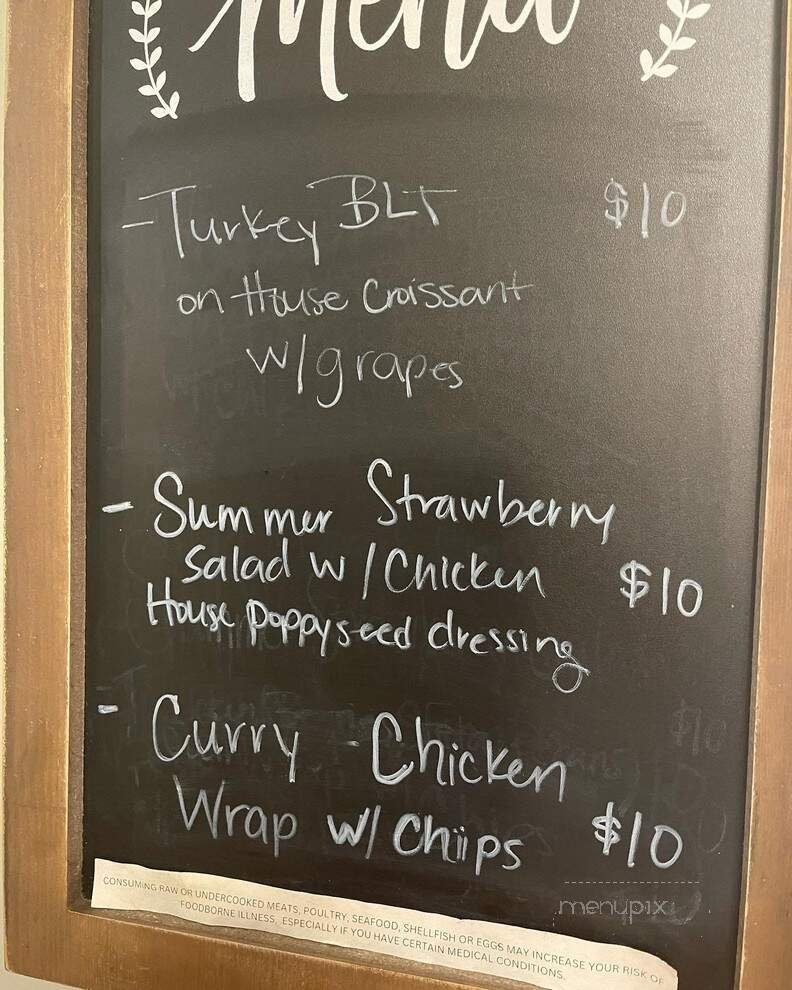 Menu
- Turkey BLT $10
on House Croissant
w/grapes
- Summer Strawberry
Salad w/Chicken $10
House poppyseed dressing
- Curry - Chicken
Wrap w/ Chiips $10
CONSUMING RAW OR UNDERCOOKED MEATS, POULTRY, SEAFOOD, SHELLFISH OR EGGS MAY INCREASE YOUR RISK OF
FOODBORNE ILLNESS, ESPECIALLY IF YOU HAVE CERTAIN MEDICAL CONDITIONS.
menupix